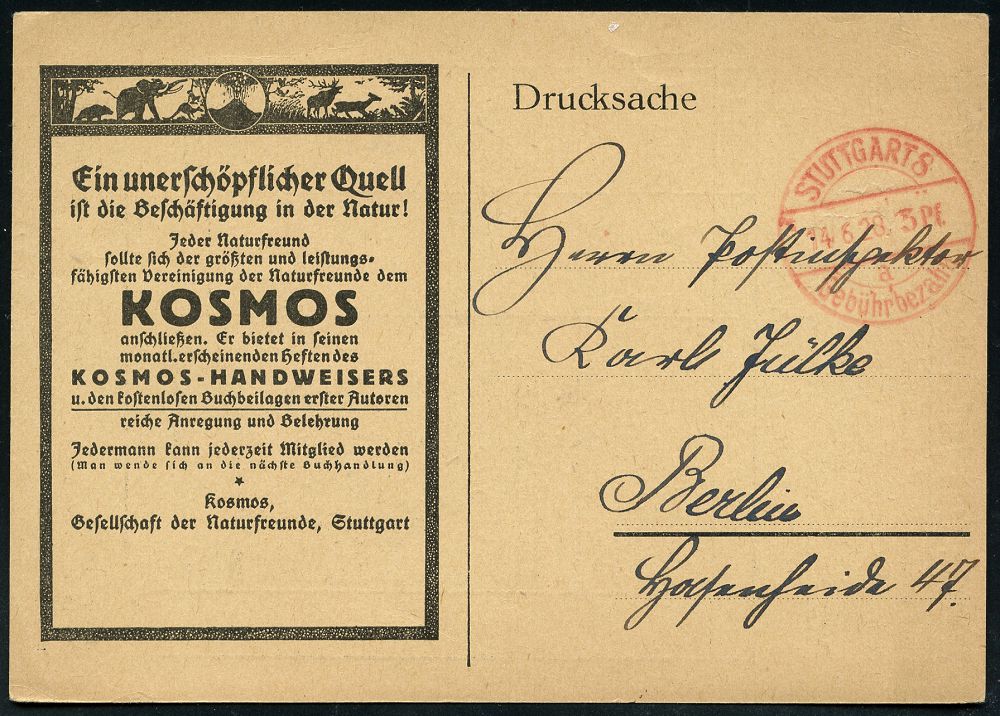 Ein unerschöpflicher Quell
ist die Beschäftigung in der Natur!
Jeder Naturfreund
sollte sich der größten und leistungs-
fähigsten Vereinigung der Naturfreunde dem
KOSMOS
anschließen. Er bietet in seinen
monatl. erscheinenden Heften des
KOSMOS-HANDWEISERS
u. den kostenlosen Buchbeilagen erster Autoren
reiche Anregung und Belehrung
Jedermann kann jederzeit Mitglied werden
(Man wende sich an die nächste Buchhandlung)
Kosmos,
Gesellschaft der Naturfreunde, Stuttgart
Drucksache
STUTTGART 8
14.6.28. 3 Pf.
a
Gebühr bezahlt
Herrn Postinspektor
Karl Jülke
Berlin
Hasenheide 47.